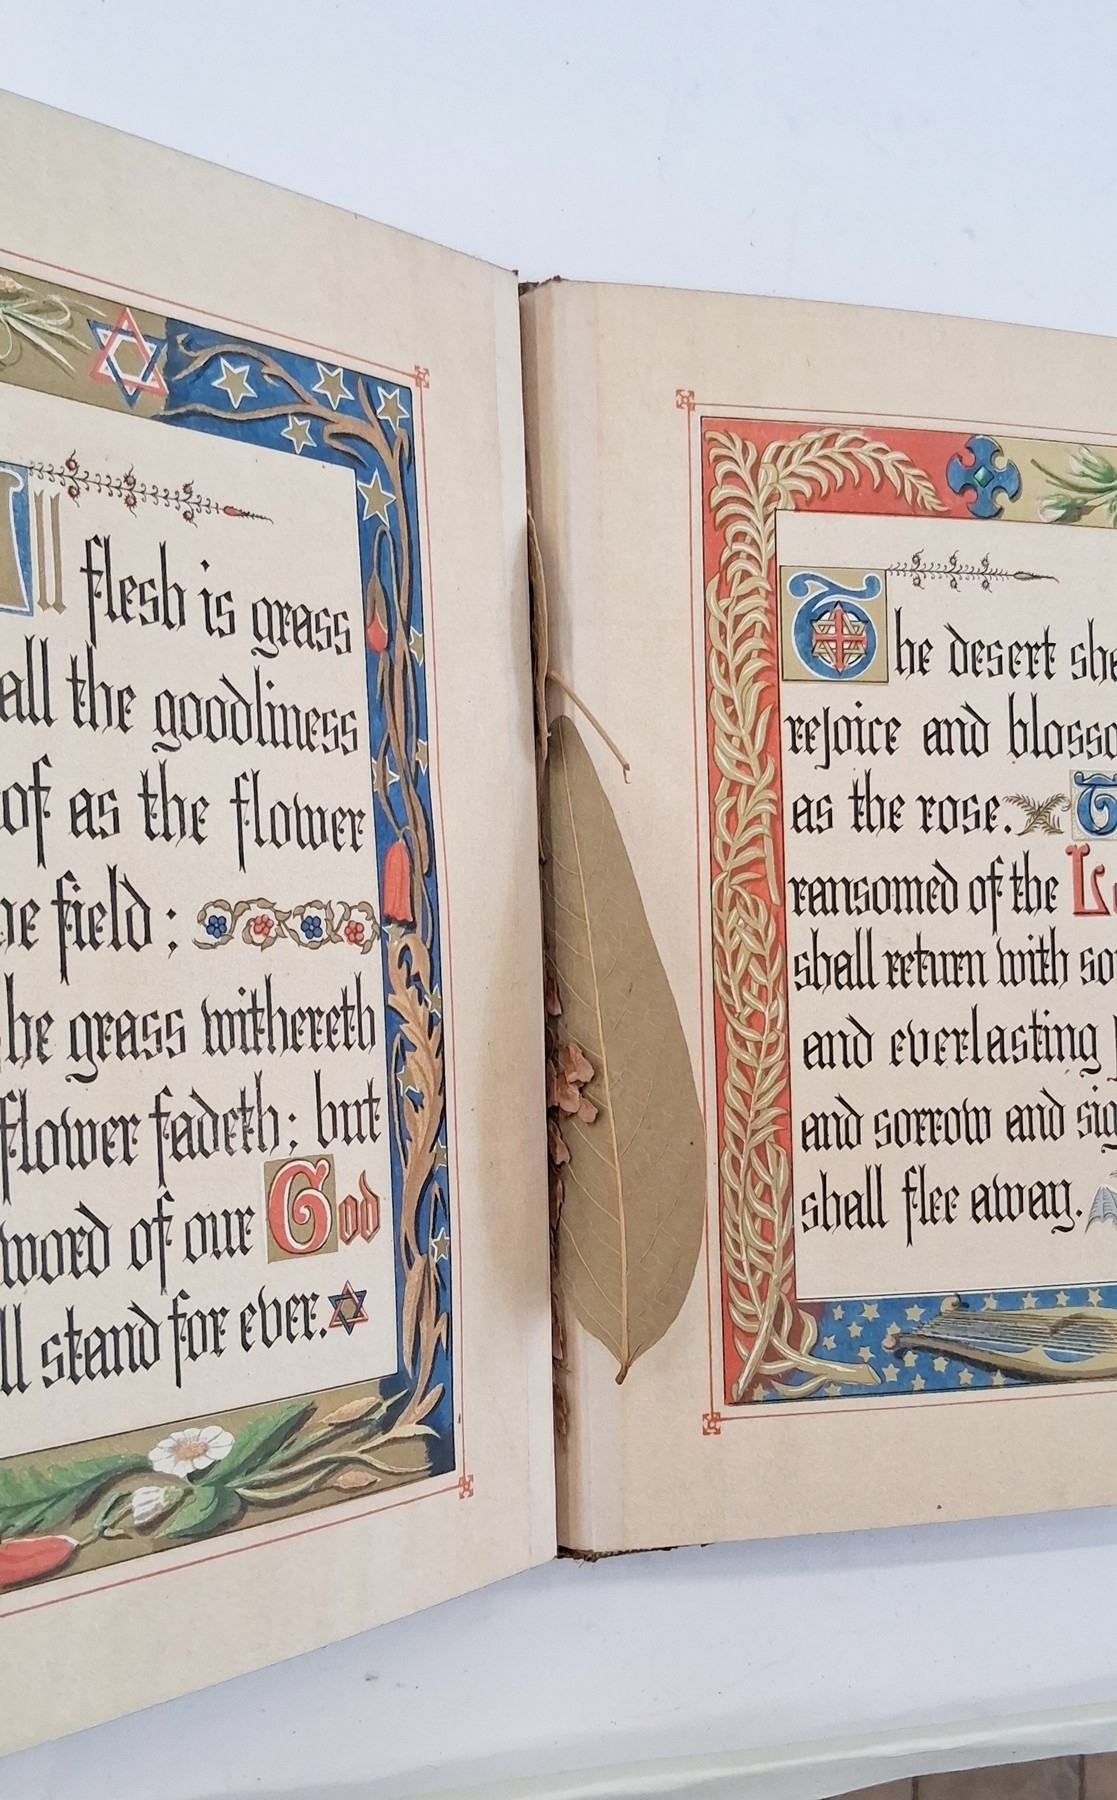 ll flesh is grass
all the goodliness
of as the flower
field ;
he grass withereth
flower fadeth; but
word of our God
ll stand for ever.
The desert sha
rejoice and blosso
as the rose. T
ransomed of the Lo
shall return with so
and everlasting
and sorrow and sig
shall flee away.